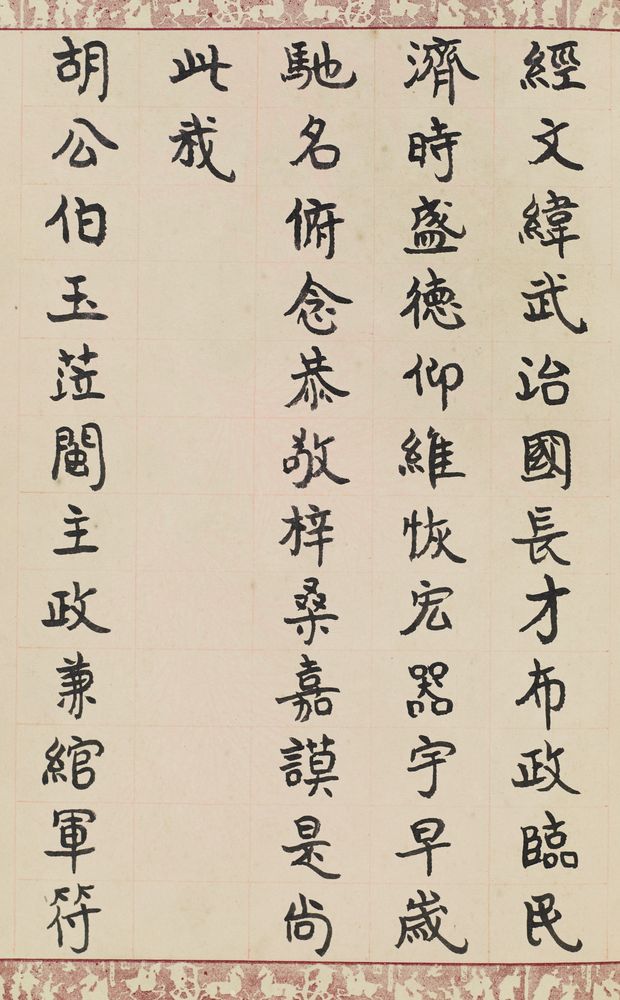 經文緯武治國長才布政臨民
濟時盛德仰維恢宏器宇早歲
馳名俯念恭敬梓桑嘉謨是尚
此哉
胡公伯玉蒞閩主政兼綰軍符